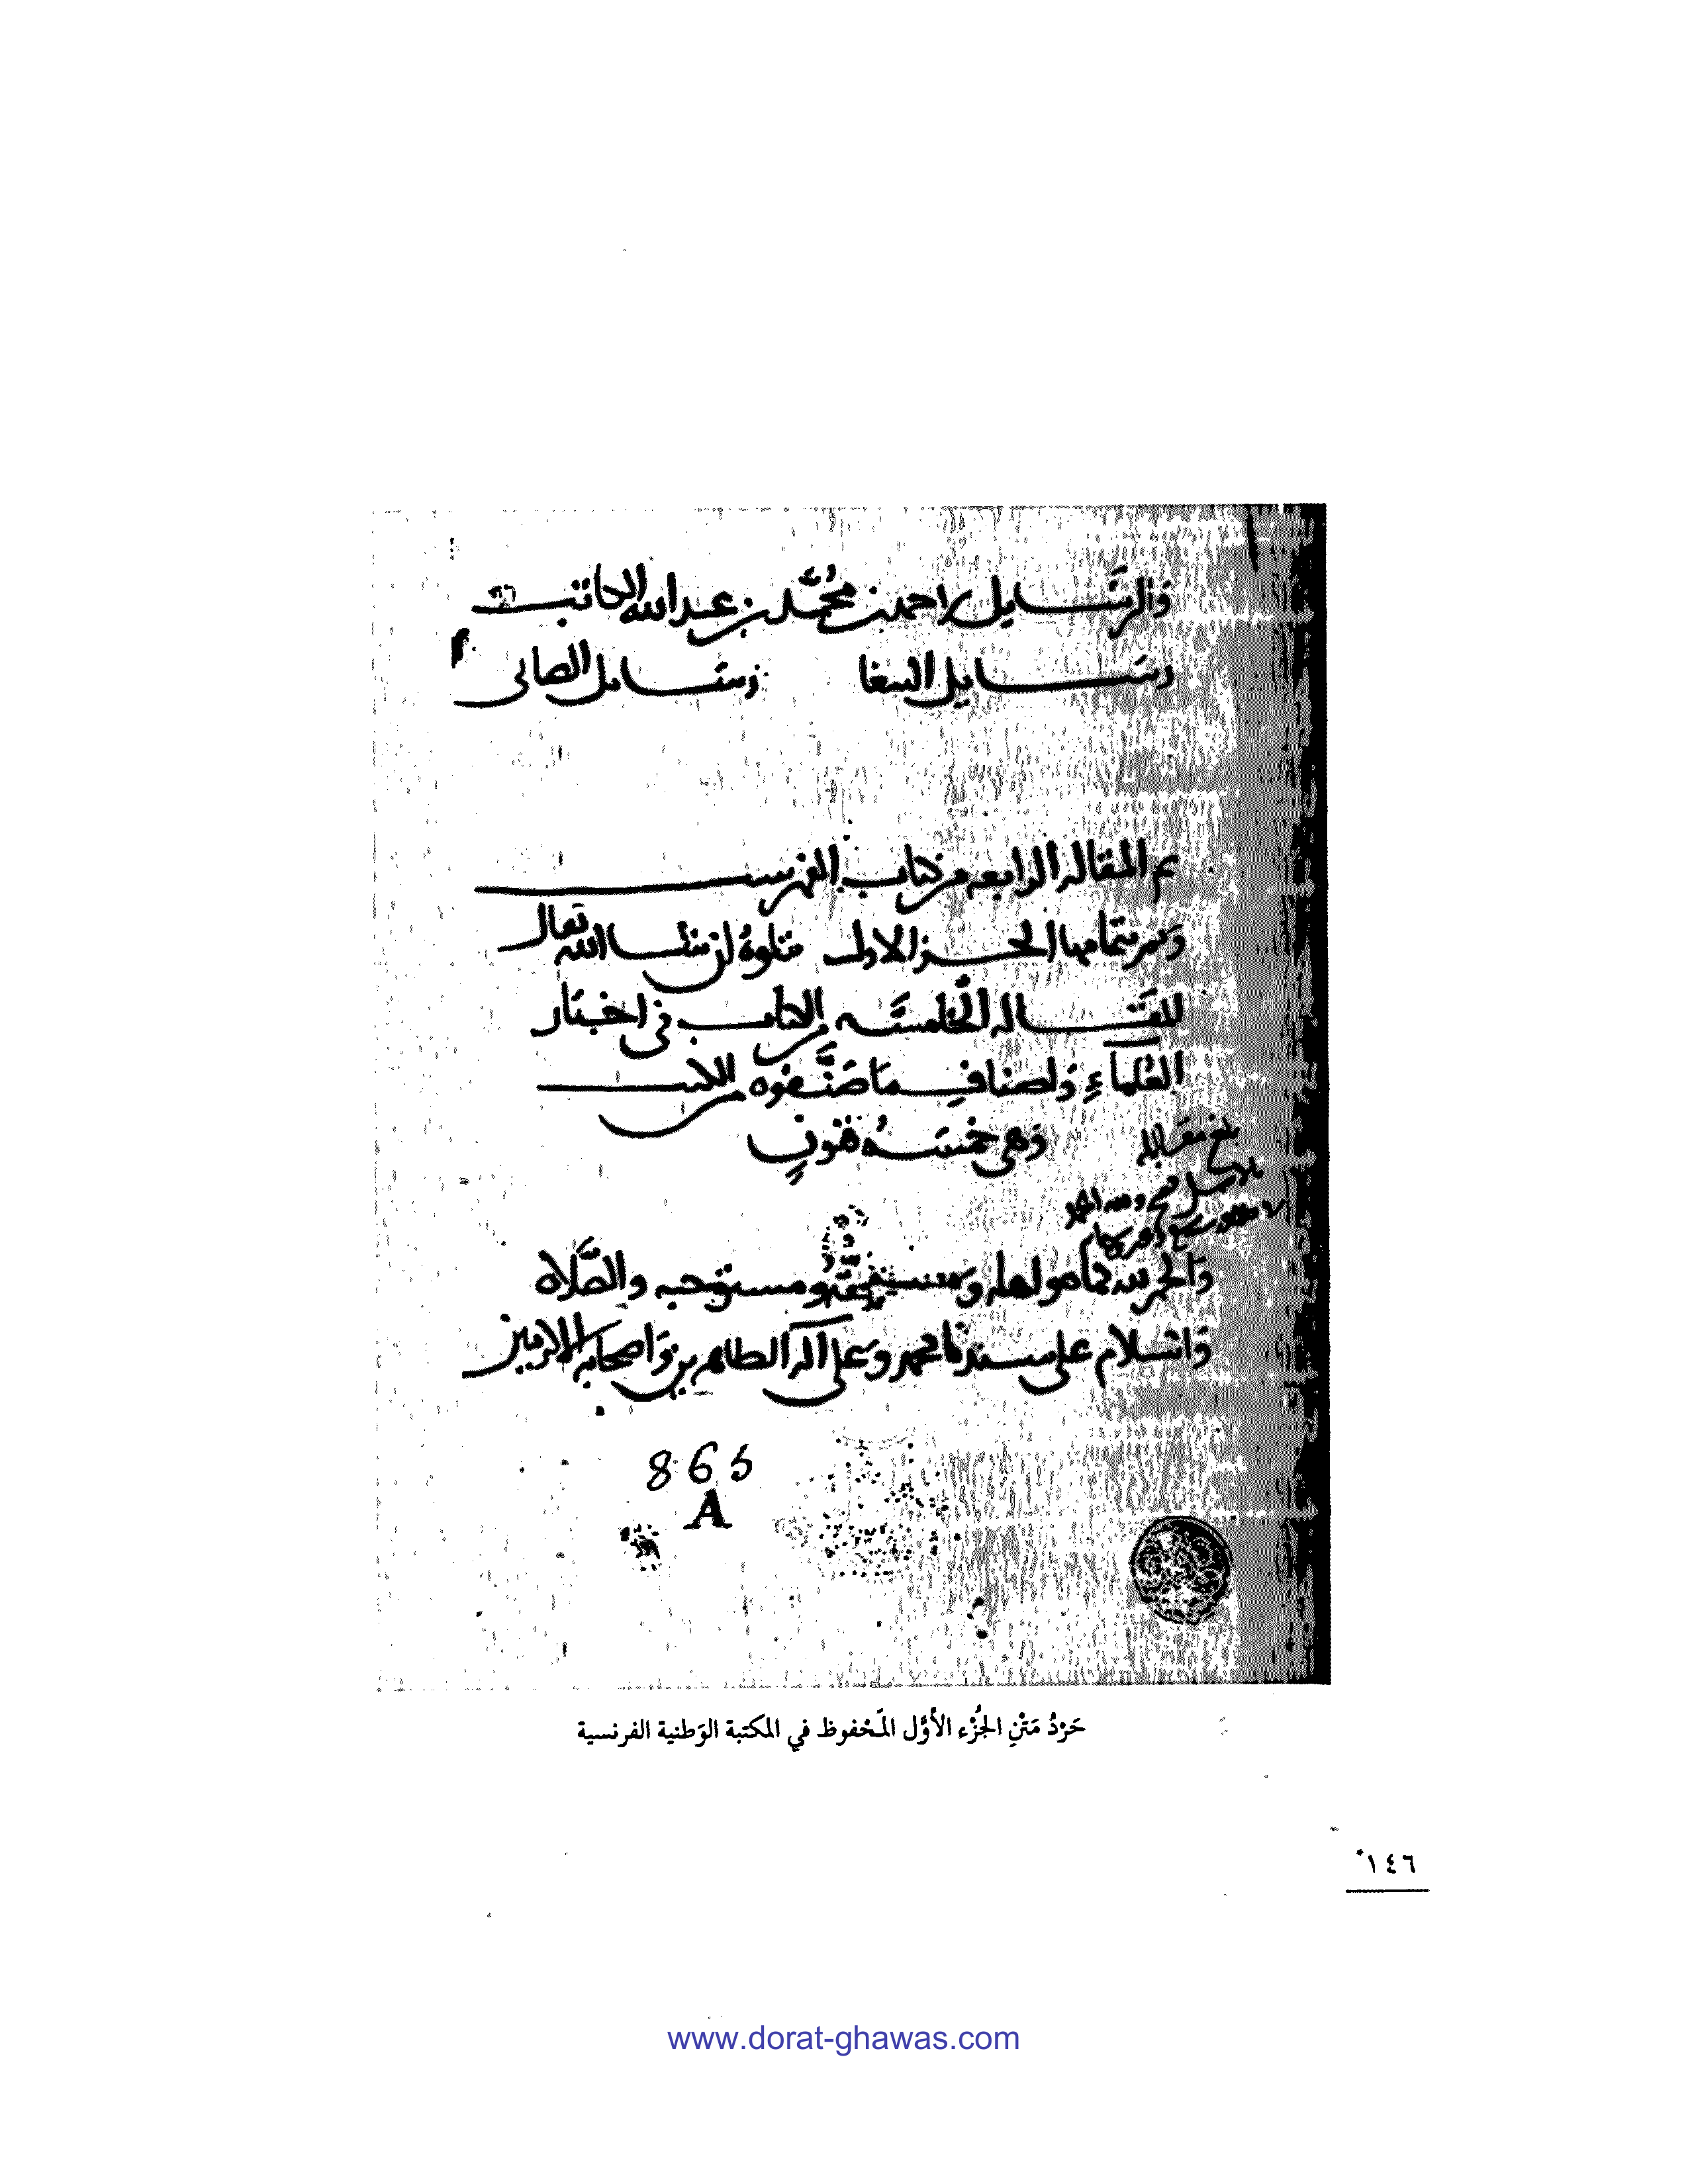 والرسايل لاحمد بن محمد بن عبد الله الكاتب
رسايل الببغا رسايل الصابى
تم المقاله الرابعه من كتاب الفهرست
وتم بتمامها الجزء الاول يتلوهُ ان شا الله تعالى
المقاله الخامسه من الكتاب فى اخبار
العُلماءِ واصنافِ ما صَنَّفوه من الكتب
وَهى خمسَهُ فنونٍ
بلغ مقابله
بالاصل فصح ولله الحمد
والحمد لله كما هو اهله ومستحقهُ ومستوجبه والصَّلاه
والسلام على سيدنا محمد وعلى آله الطاهرين واصحابه الاكرمين
865
A
حَرْدُ مَتْنِ الجُزْء الأوَّل المَحْفوظ في المكتبة الوَطنية الفرنسية
١٤٦
www.dorat-ghawas.com